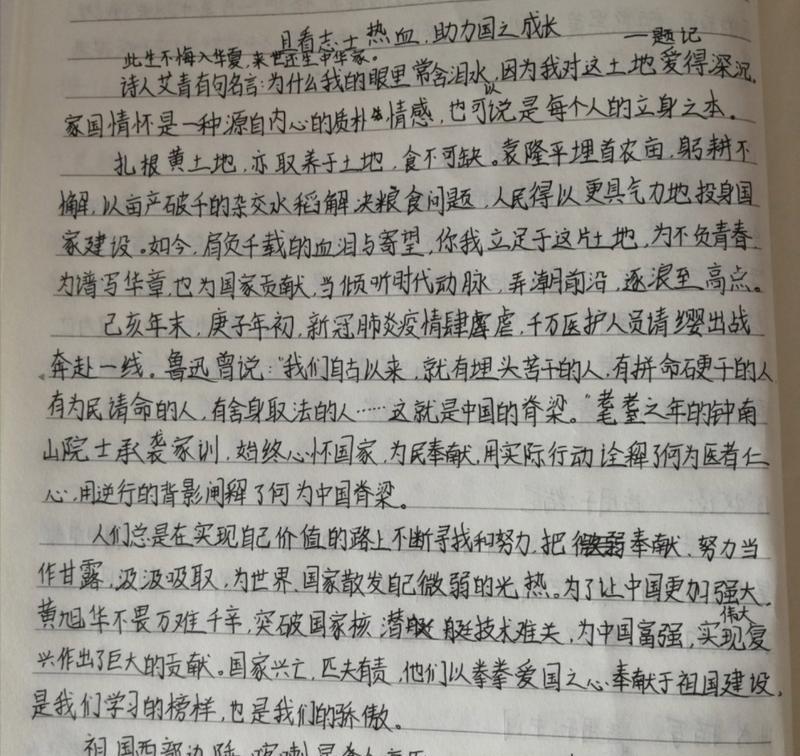 且看志士热血，助力国之成长 —题记
此生不悔入华夏，来世还生中华家。
诗人艾青有句名言：为什么我的眼里常含泪水，因为我对这土地爱得深沉。
家国情怀是一种源自内心的质朴情感，也可以说是每个人的立身之本。
扎根黄土地，亦取养于土地，食不可缺。袁隆平埋首农亩，躬耕不
懈，以亩产破千的杂交水稻解决粮食问题，人民得以更具气力地投身国
家建设。如今，肩负千载的血泪与寄望，你我立足于这片土地，为不负青春
为谱写华章，也为国家贡献，当倾听时代动脉，弄潮前沿，逐浪至高点。
己亥年末，庚子年初，新冠肺炎疫情肆虐，千万医护人员请缨出战
奔赴一线。鲁迅曾说：“我们自古以来，就有埋头苦干的人，有拼命硬干的人
有为民请命的人，有舍身取法的人……这就是中国的脊梁。”耄耋之年的钟南
山院士承袭家训，始终心怀国家，为民奉献，用实际行动诠释了何为医者仁
心，用逆行的背影阐释了何为中国脊梁。
人们总是在实现自己价值的路上不断寻找和努力，把微弱奉献、努力当
作甘露，汲汲吸取，为世界、国家散发自己微弱的光热。为了让中国更加强大，
黄旭华不畏万难千辛，突破国家核潜艇技术难关，为中国富强，实现伟大复
兴作出了巨大的贡献。国家兴亡，匹夫有责，他们以拳拳爱国之心奉献于祖国建设，
是我们学习的榜样，也是我们的骄傲。
祖国西部边陲，喀喇昆仑